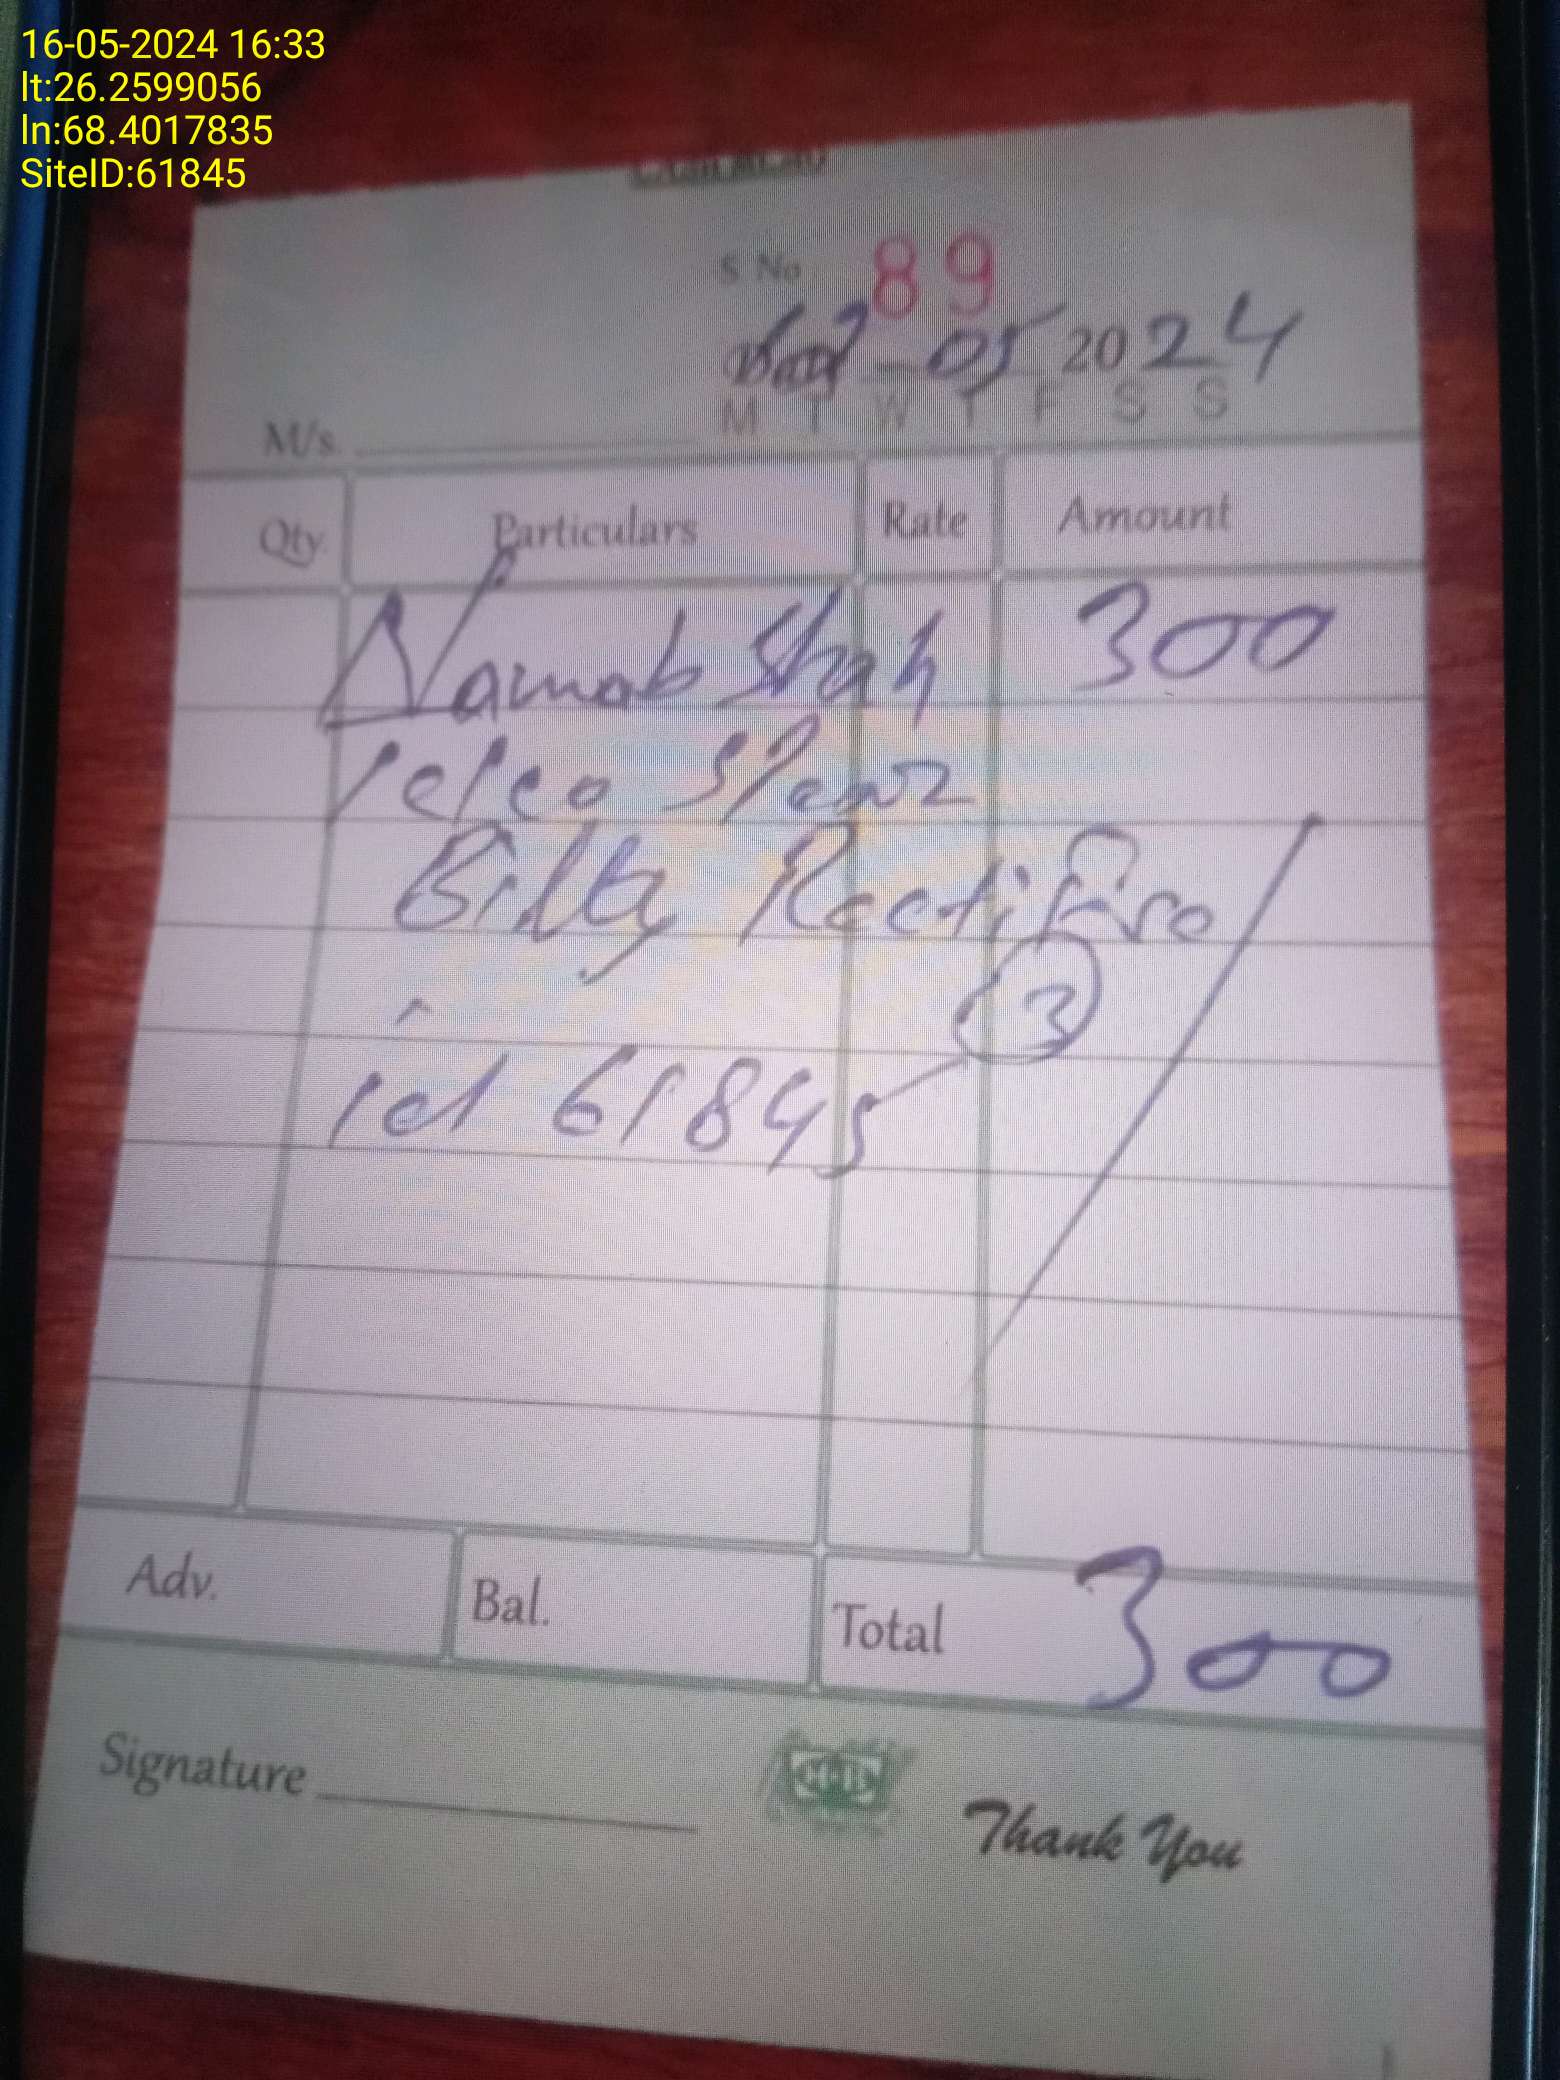 16-05-2024 16:33
lt:26.2599056
ln:68.4017835
SiteID:61845
S No 89
05 2024
M T W T F S S
M/s.
Qty. Particulars Rate Amount
Nawab Shah 300
Bilty Rectifire
3
id 61845
Adv. Bal. Total 300
Signature
Thank You